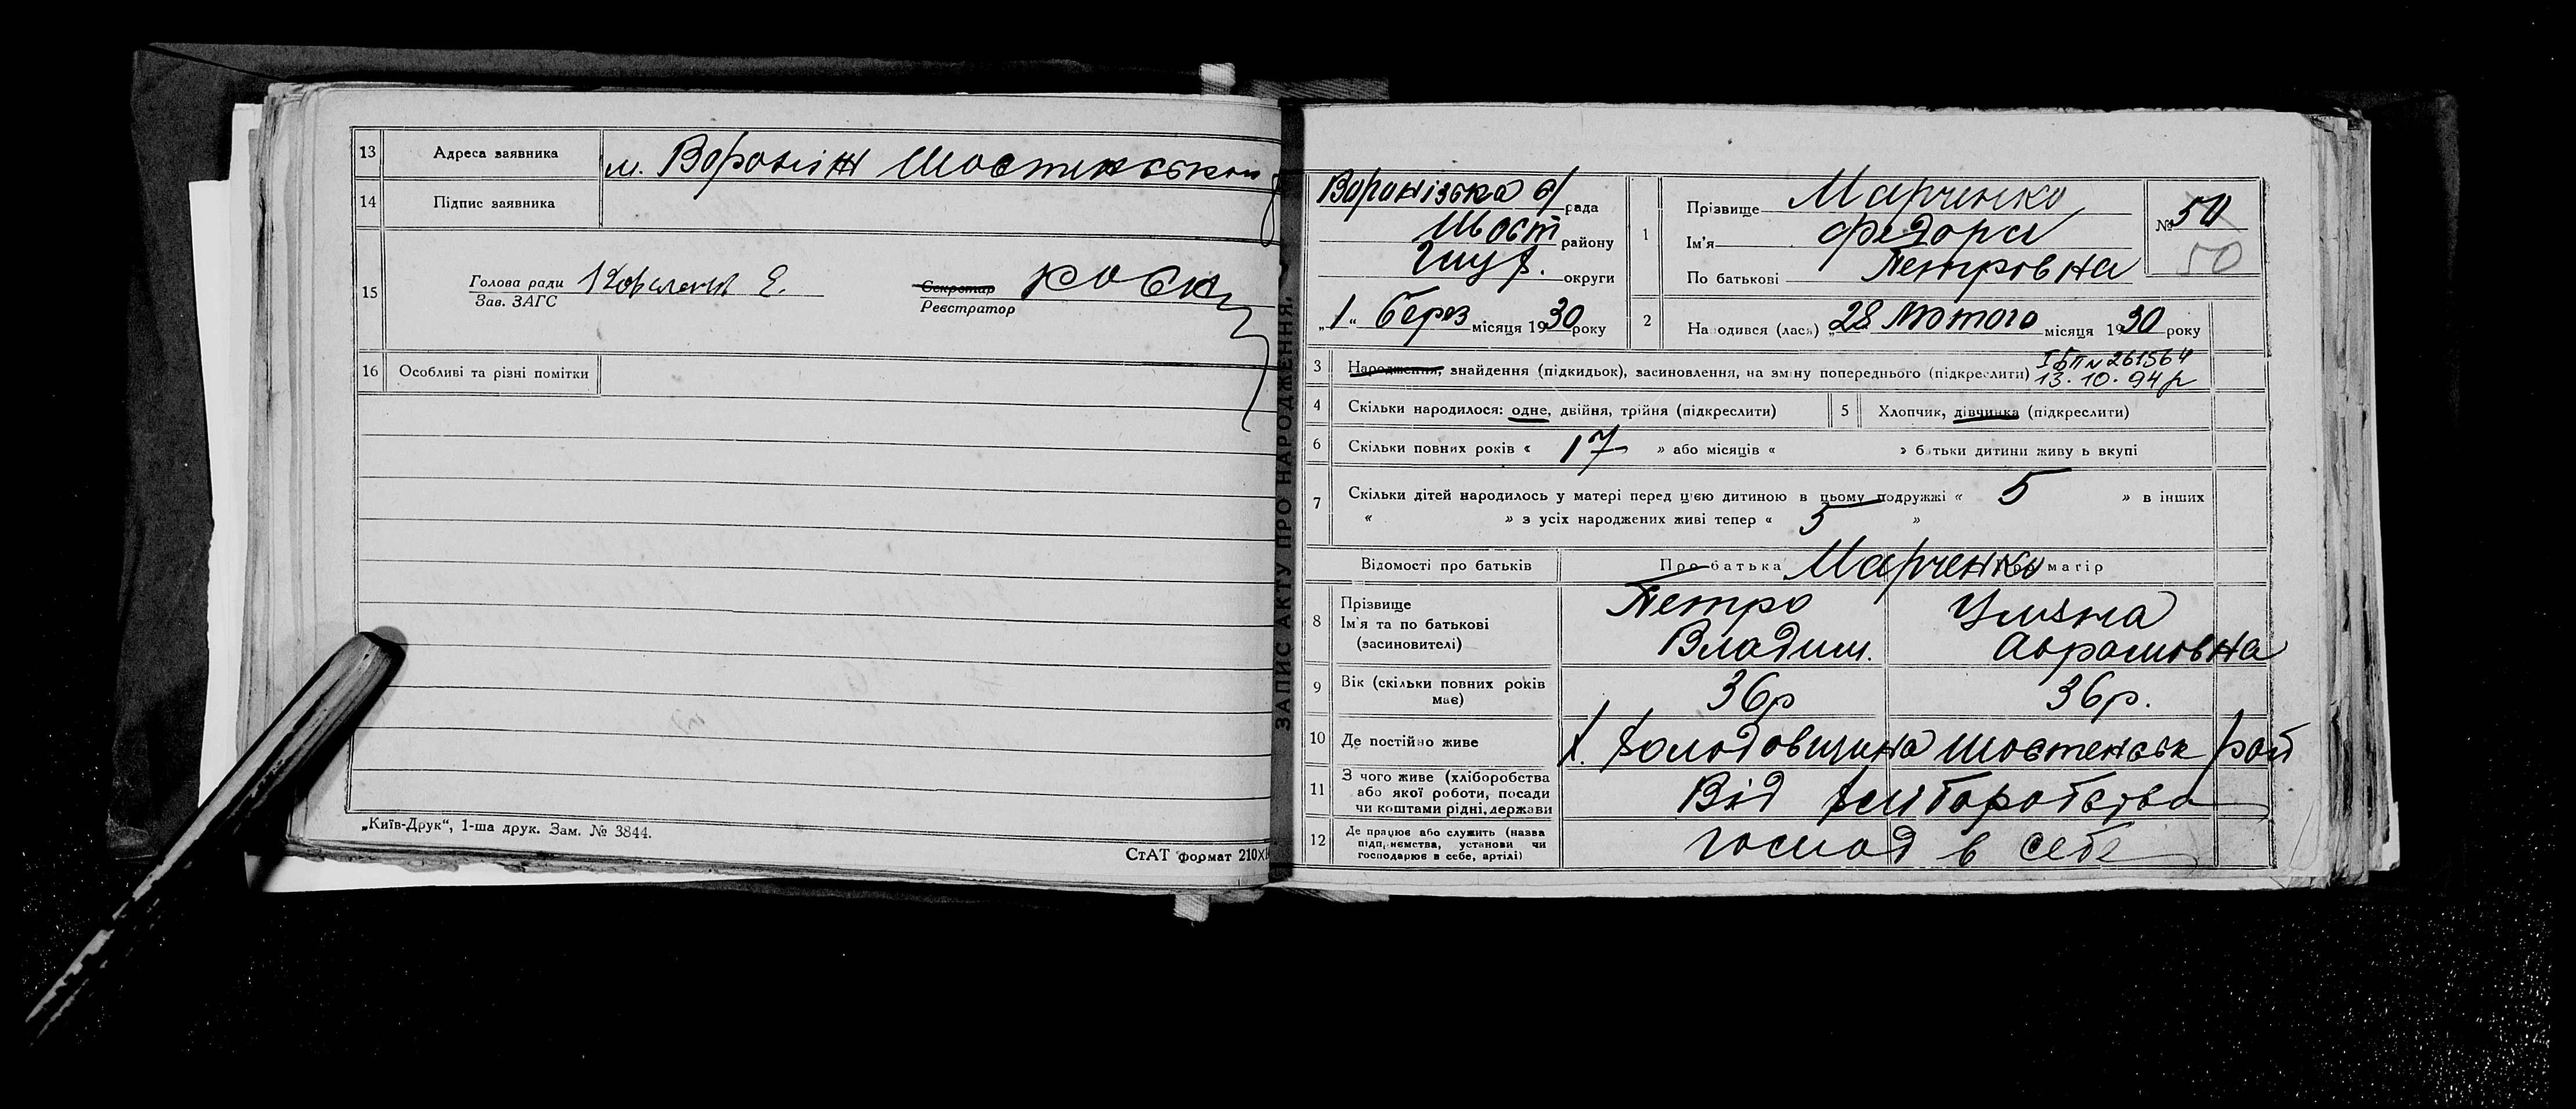 13 Адреса заявника м. Вороніж Шостенськой
14 Підпис заявника
15 Голова ради Коваленко Е. Секретар
Зав. ЗАГС Реєстратор
16 Особливі та різні помітки
„Київ-Друк“, 1-ша друк. Зам. № 3844.
СтАТ формат 210
ЗАПИС АКТУ ПРО НАРОДЖЕННЯ.
Воронізька с/рада
Шост району
Глух. округи
„1“ берез місяця 1930 року
1 Прізвище Марченко
Ім'я Федора
По батькові Петровна
№ 50
50
2 Народився (лась) „28 Лютого місяця 1930 року
3 Народження, знайдення (підкидьок), засиновлення, на зміну попереднього (підкреслити) І БП № 261564
13.10.94 р
4 Скільки народилося: одне, двійня, трійня (підкреслити) 5 Хлопчик, дівчинка (підкреслити)
6 Скільки повних років « 17 » або місяців « » батьки дитини живуть вкупі
7 Скільки дітей народилось у матері перед цією дитиною в цьому подружжі « 5 » в інших
« » з усіх народжених живі тепер « 5 »
Відомості про батьків Про батька Марченко Про матір
8 Прізвище
Ім'я та по батькові
(засиновителі)
Петро
Владим.
Уляна
Аврамовна
9 Вік (скільки повних років
має)
36р 36р.
10 Де постійно живе х. Холодовщина Шостенськ рай
11 З чого живе (хліборобства
або якої роботи, посади
чи коштами рідні, держави
Від хліборобства
12 Де працює або служить (назва
підприємства, установи чи
господарює в себе, артілі)
господ в себе